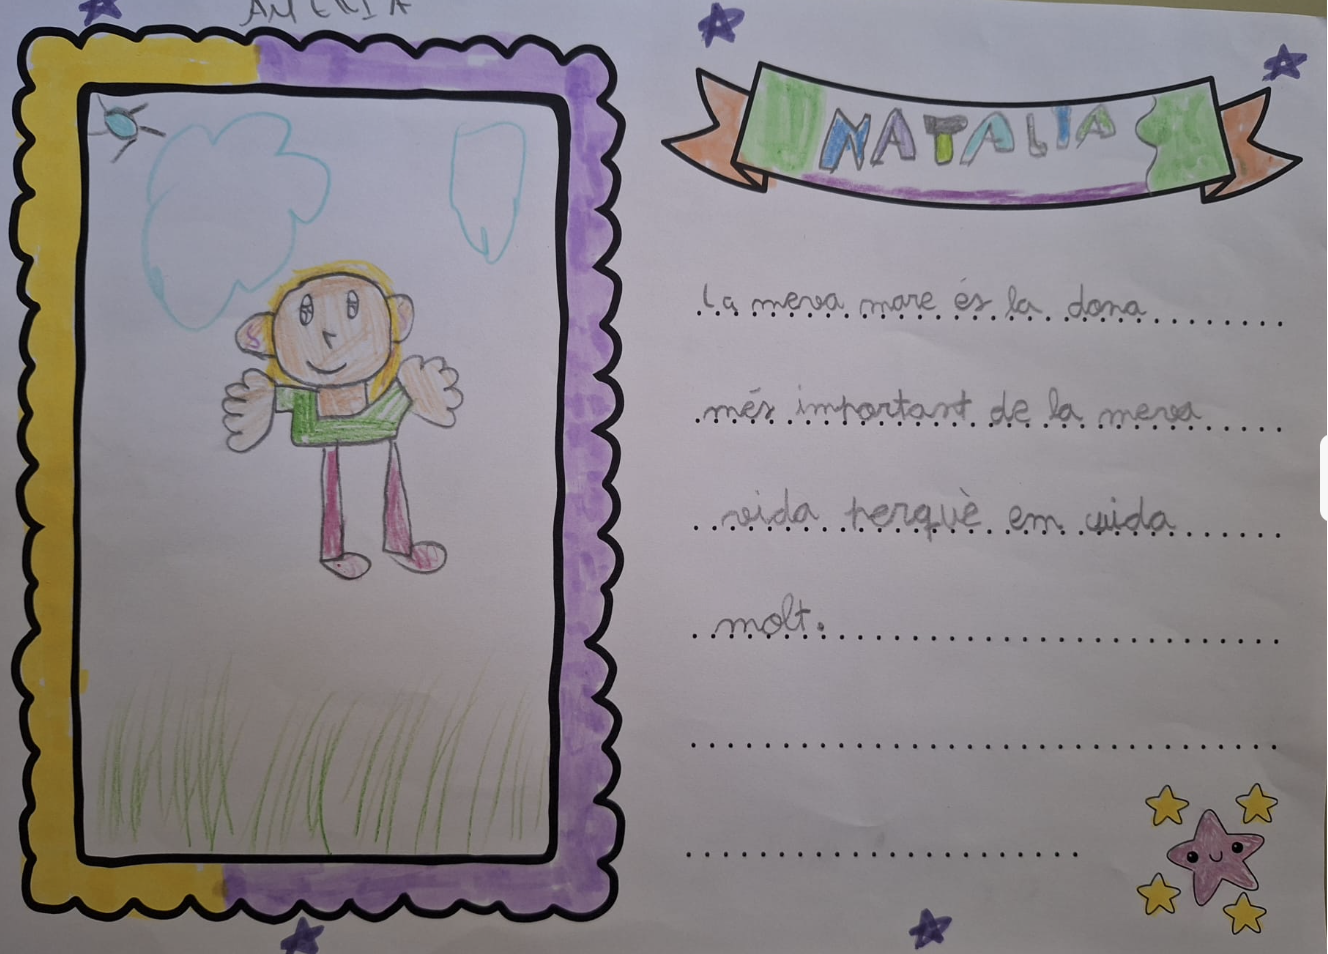 NATALIA
La meva mare és la dona
més important de la meva
vida perquè em cuida
molt.